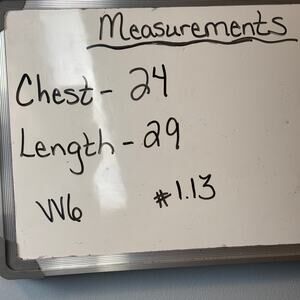 Measurements
Chest - 24
Length - 29
VV6 #1.13